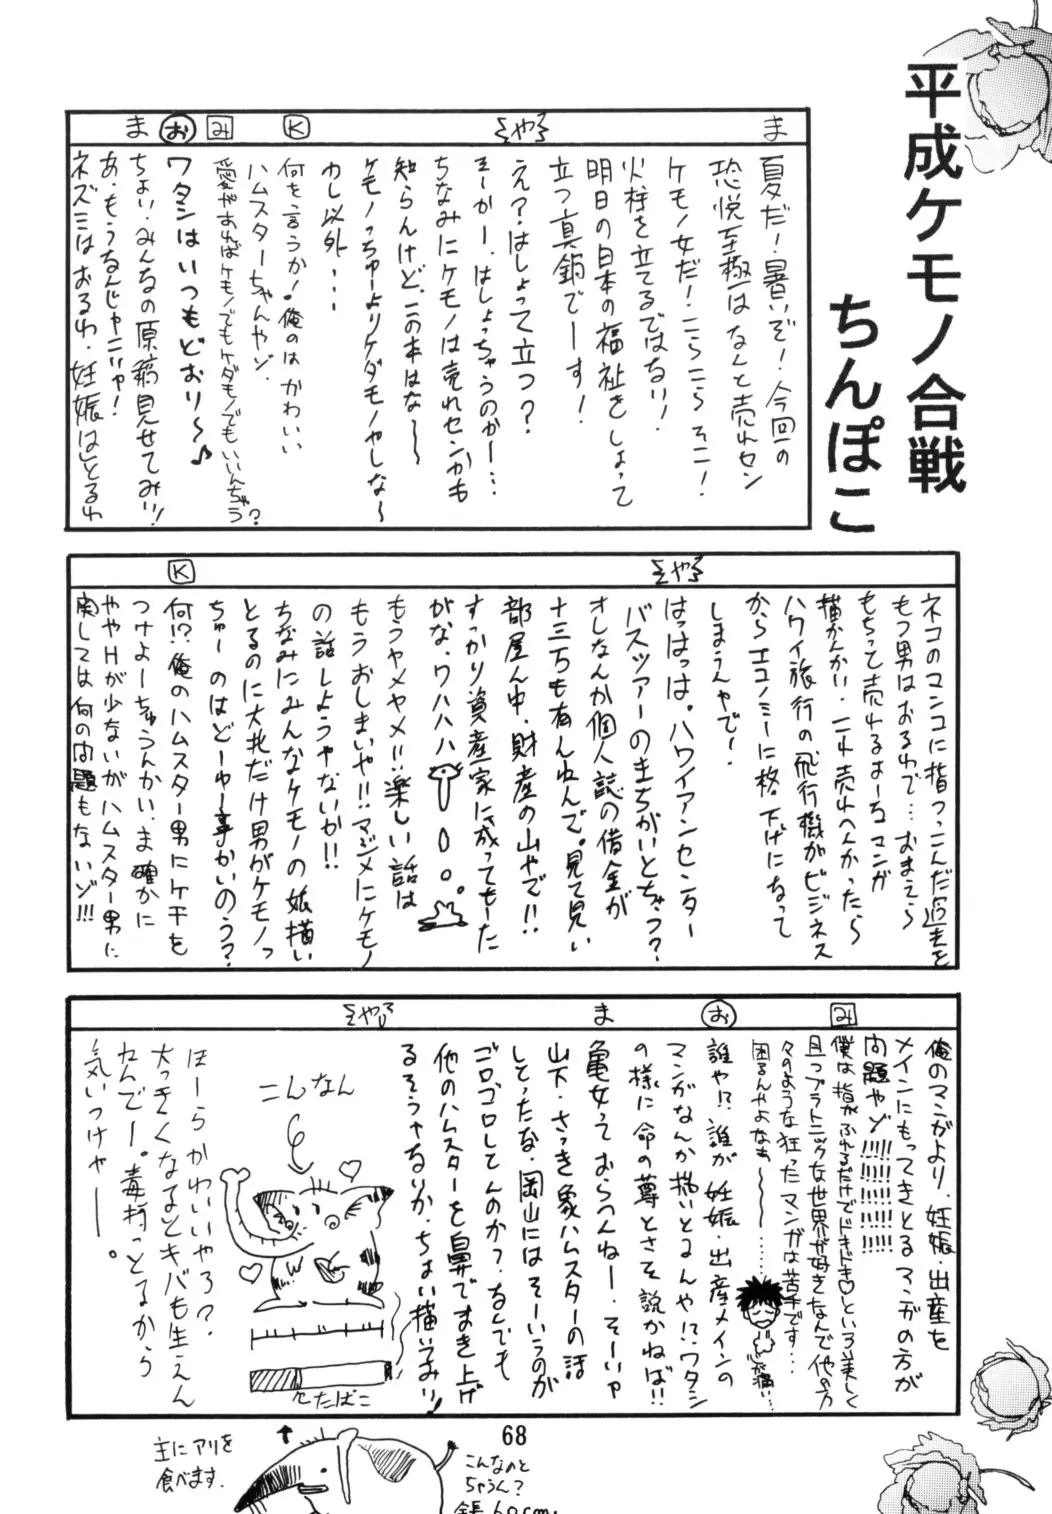 平成ケモノ合戦
ちんぽこ
ま
夏だ!暑いぞ!今回の
恐悦至極はなんと売れセン
ケモノ女だ!こらこらそこ!
火柱を立てるではない!
明日の日本の福祉をしょって
立つ真鍋でーす!
そや
えぇ?はしょって立つ?
そーかー、はしょっちゃうのかー…
ちなみにケモノは売れセンかも
知らんけど、この本はな~
ケモノっちゅーよりケダモノやしな~
わし以外・・・
K
何を言うか!俺のはかわいい
ハムスターちゃんやゾ.
み
愛があればケモノでもケダモノでもいいんちゃう?
お
ワタシはいつもどおり~♪
ま
ちょい・みんなの原稿見せてみい!
あ、もうなんじゃこいゃ!
ネズミはおるわ、妊娠はしとるわ
ネコのマンコに指つっこんだ過去を
もつ男はおるわで…おまえら
もちっと売れるよーなマンガ
描かんかい、これ売れへんかったら
ハワイ旅行の飛行機がビジネス
からエコノミーに格下げになって
しまうんやで!
そや
はっはっは。ハワイアンセンター
バスツアーのまちがいとちゃう?
オレなんか個人誌の借金が
十三万も有んねんで。見て見い
部屋ん中、財産の山やで!!
すっかり資産家に成ってもーた
がな、ワハハハ
もうヤメヤメ!!楽しい話は
もうおしまいや!!マジメにケモノ
の話しようやないか!!
ちなみにみんなケモノの娘描い
とるのに大北だけ男がケモノっ
ちゅーのはどーゆー事かいのう?
K
何!?俺のハムスター男にケチを
つけよーちゅうんかい、ま確かに
ややHが少ないがハムスター男に
関しては何の問題もないゾ!!!
俺のマンガより、妊娠・出産を
メインにもってきとるマンガの方が
問題やゾ!!!!!!!!!!
み
僕は指がふれるだけでドキドキ♡という美しく
且つプラトニックな世界が好きなんで他の方
々のような狂ったマンガは苦手です…
困るんやよなぁ~~~……
お
誰や!?誰が妊娠・出産メインの
マンガなんか描いとるんや!?ワタシ
の様に命の尊とさを説かねば!!
ま
亀女っておらんねー、そーいや
山下、さっき象ハムスターの話
しとったな、岡山にはそーいうのが
ゴロゴロしてんのか?なんでも
他のハムスターを鼻でまき上げ
るそうやないか、ちょい描いてみい!
そや
こんなん
たばこ
ほーらかわいいやろ?
大っきくなるとキバも生えん
ねんでー。毒持っとるから
気いつけやー。
68
主にアリを
食べます.
こんなのと
ちゃうん?
全長60cm.